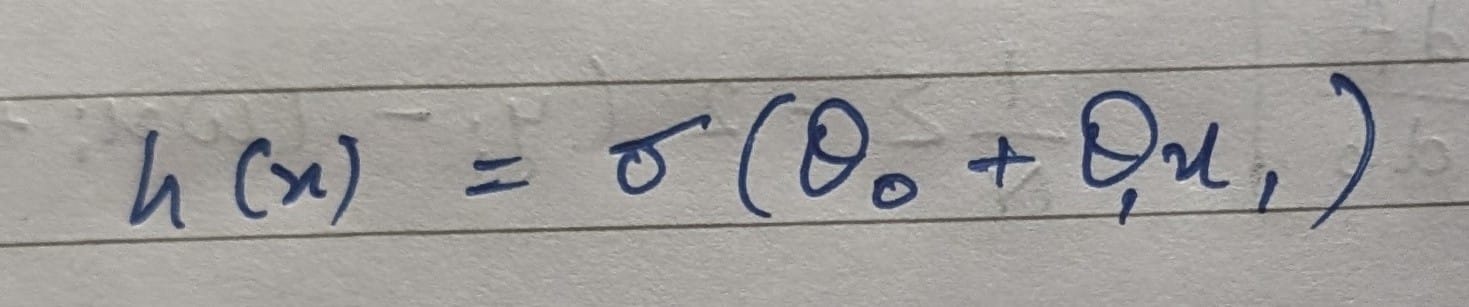 h(x) = σ(θ₀ + θ₁x₁)